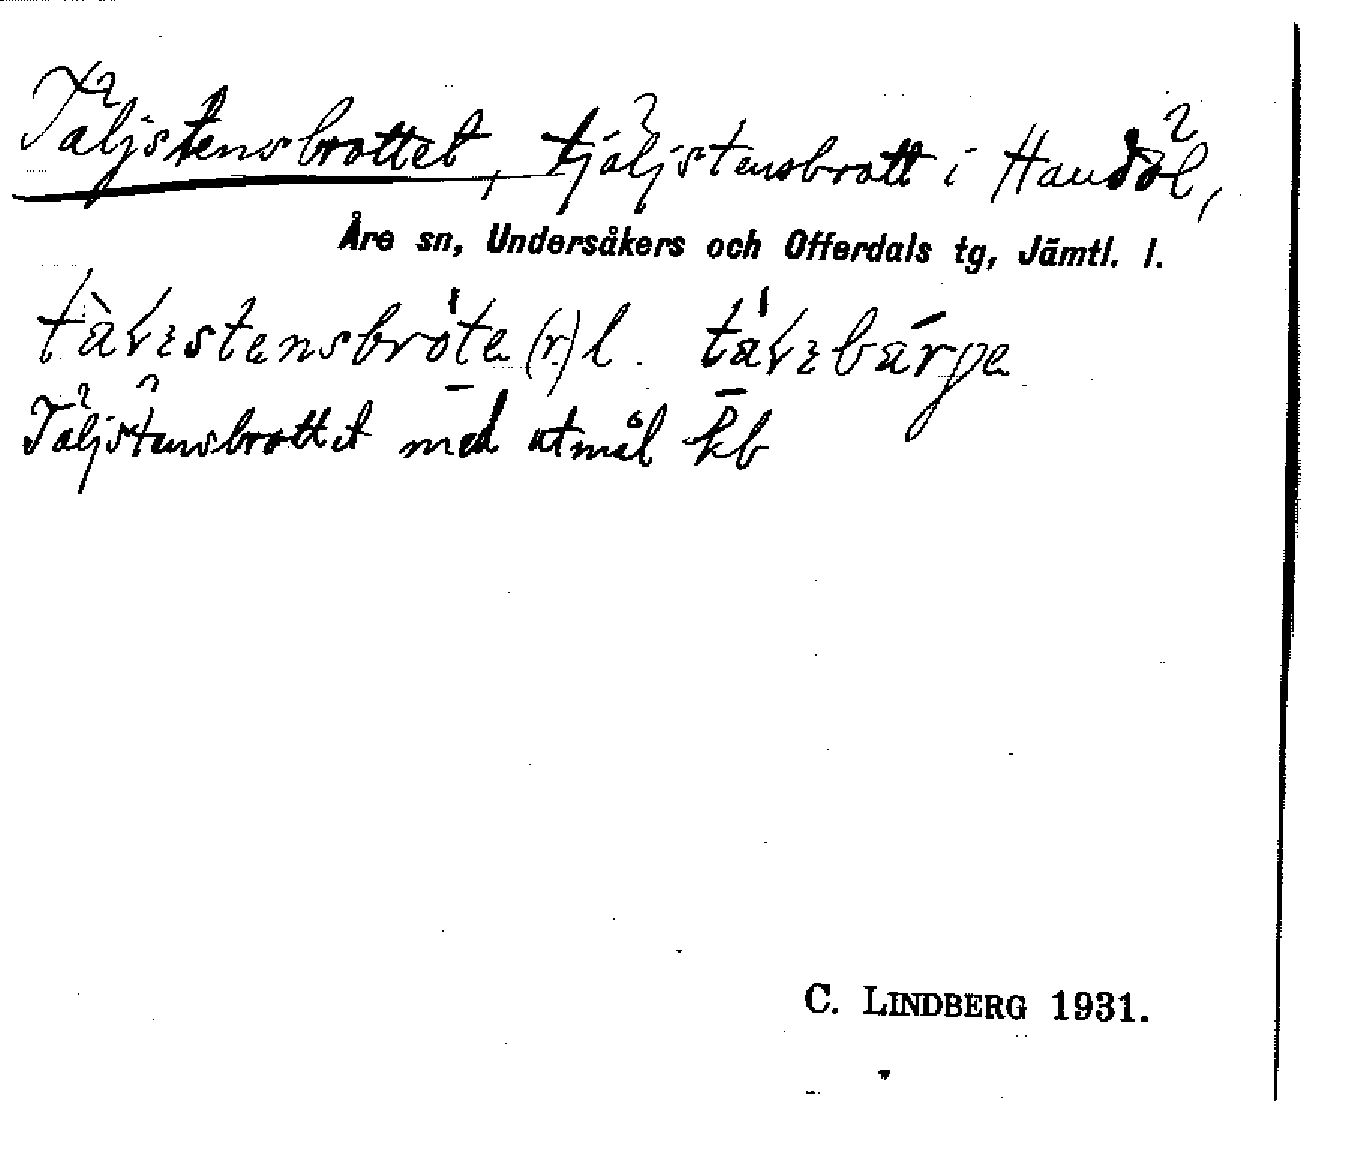 Täljstensbrottet, tjäljstensbrott i Handöl,
Åre sn, Undersåkers och Offerdals tg, Jämtl. l.
(r) l.
Täljstensbrottet med utmål kb
C. LINDBERG 1931.